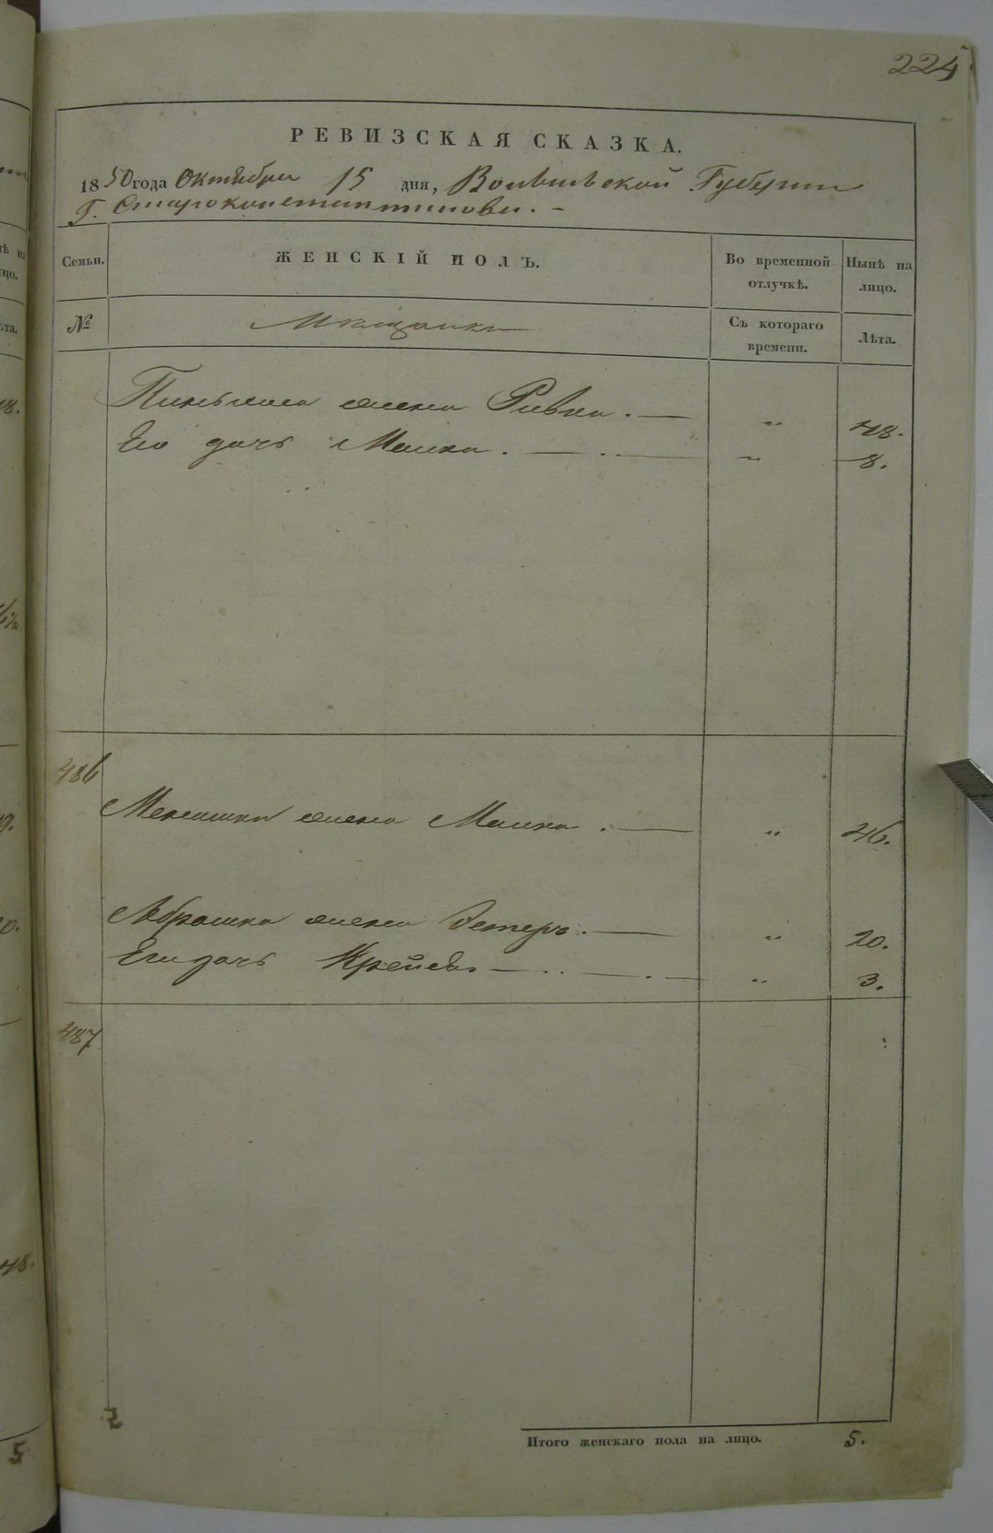 224
РЕВИЗСКАЯ СКАЗКА.
1850 года Октября 15 дня, Волынской Губернии
Г. Староконстантинова. –
Семьи. ЖЕНСКІЙ ПОЛЪ. Во временной отлучкѣ. Нынѣ на лицо.
№ Мѣщанки Съ котораго времени. Лѣта.
жена Ривка. — " 48.
Его дочь Малка. — " 8.
486
жена Малка. — " 46.
Абрашка жена Эстеръ. — " 20.
Его дочь Крейсе. — " 3.
487
2
Итого женскаго пола на лицо. 5.
5